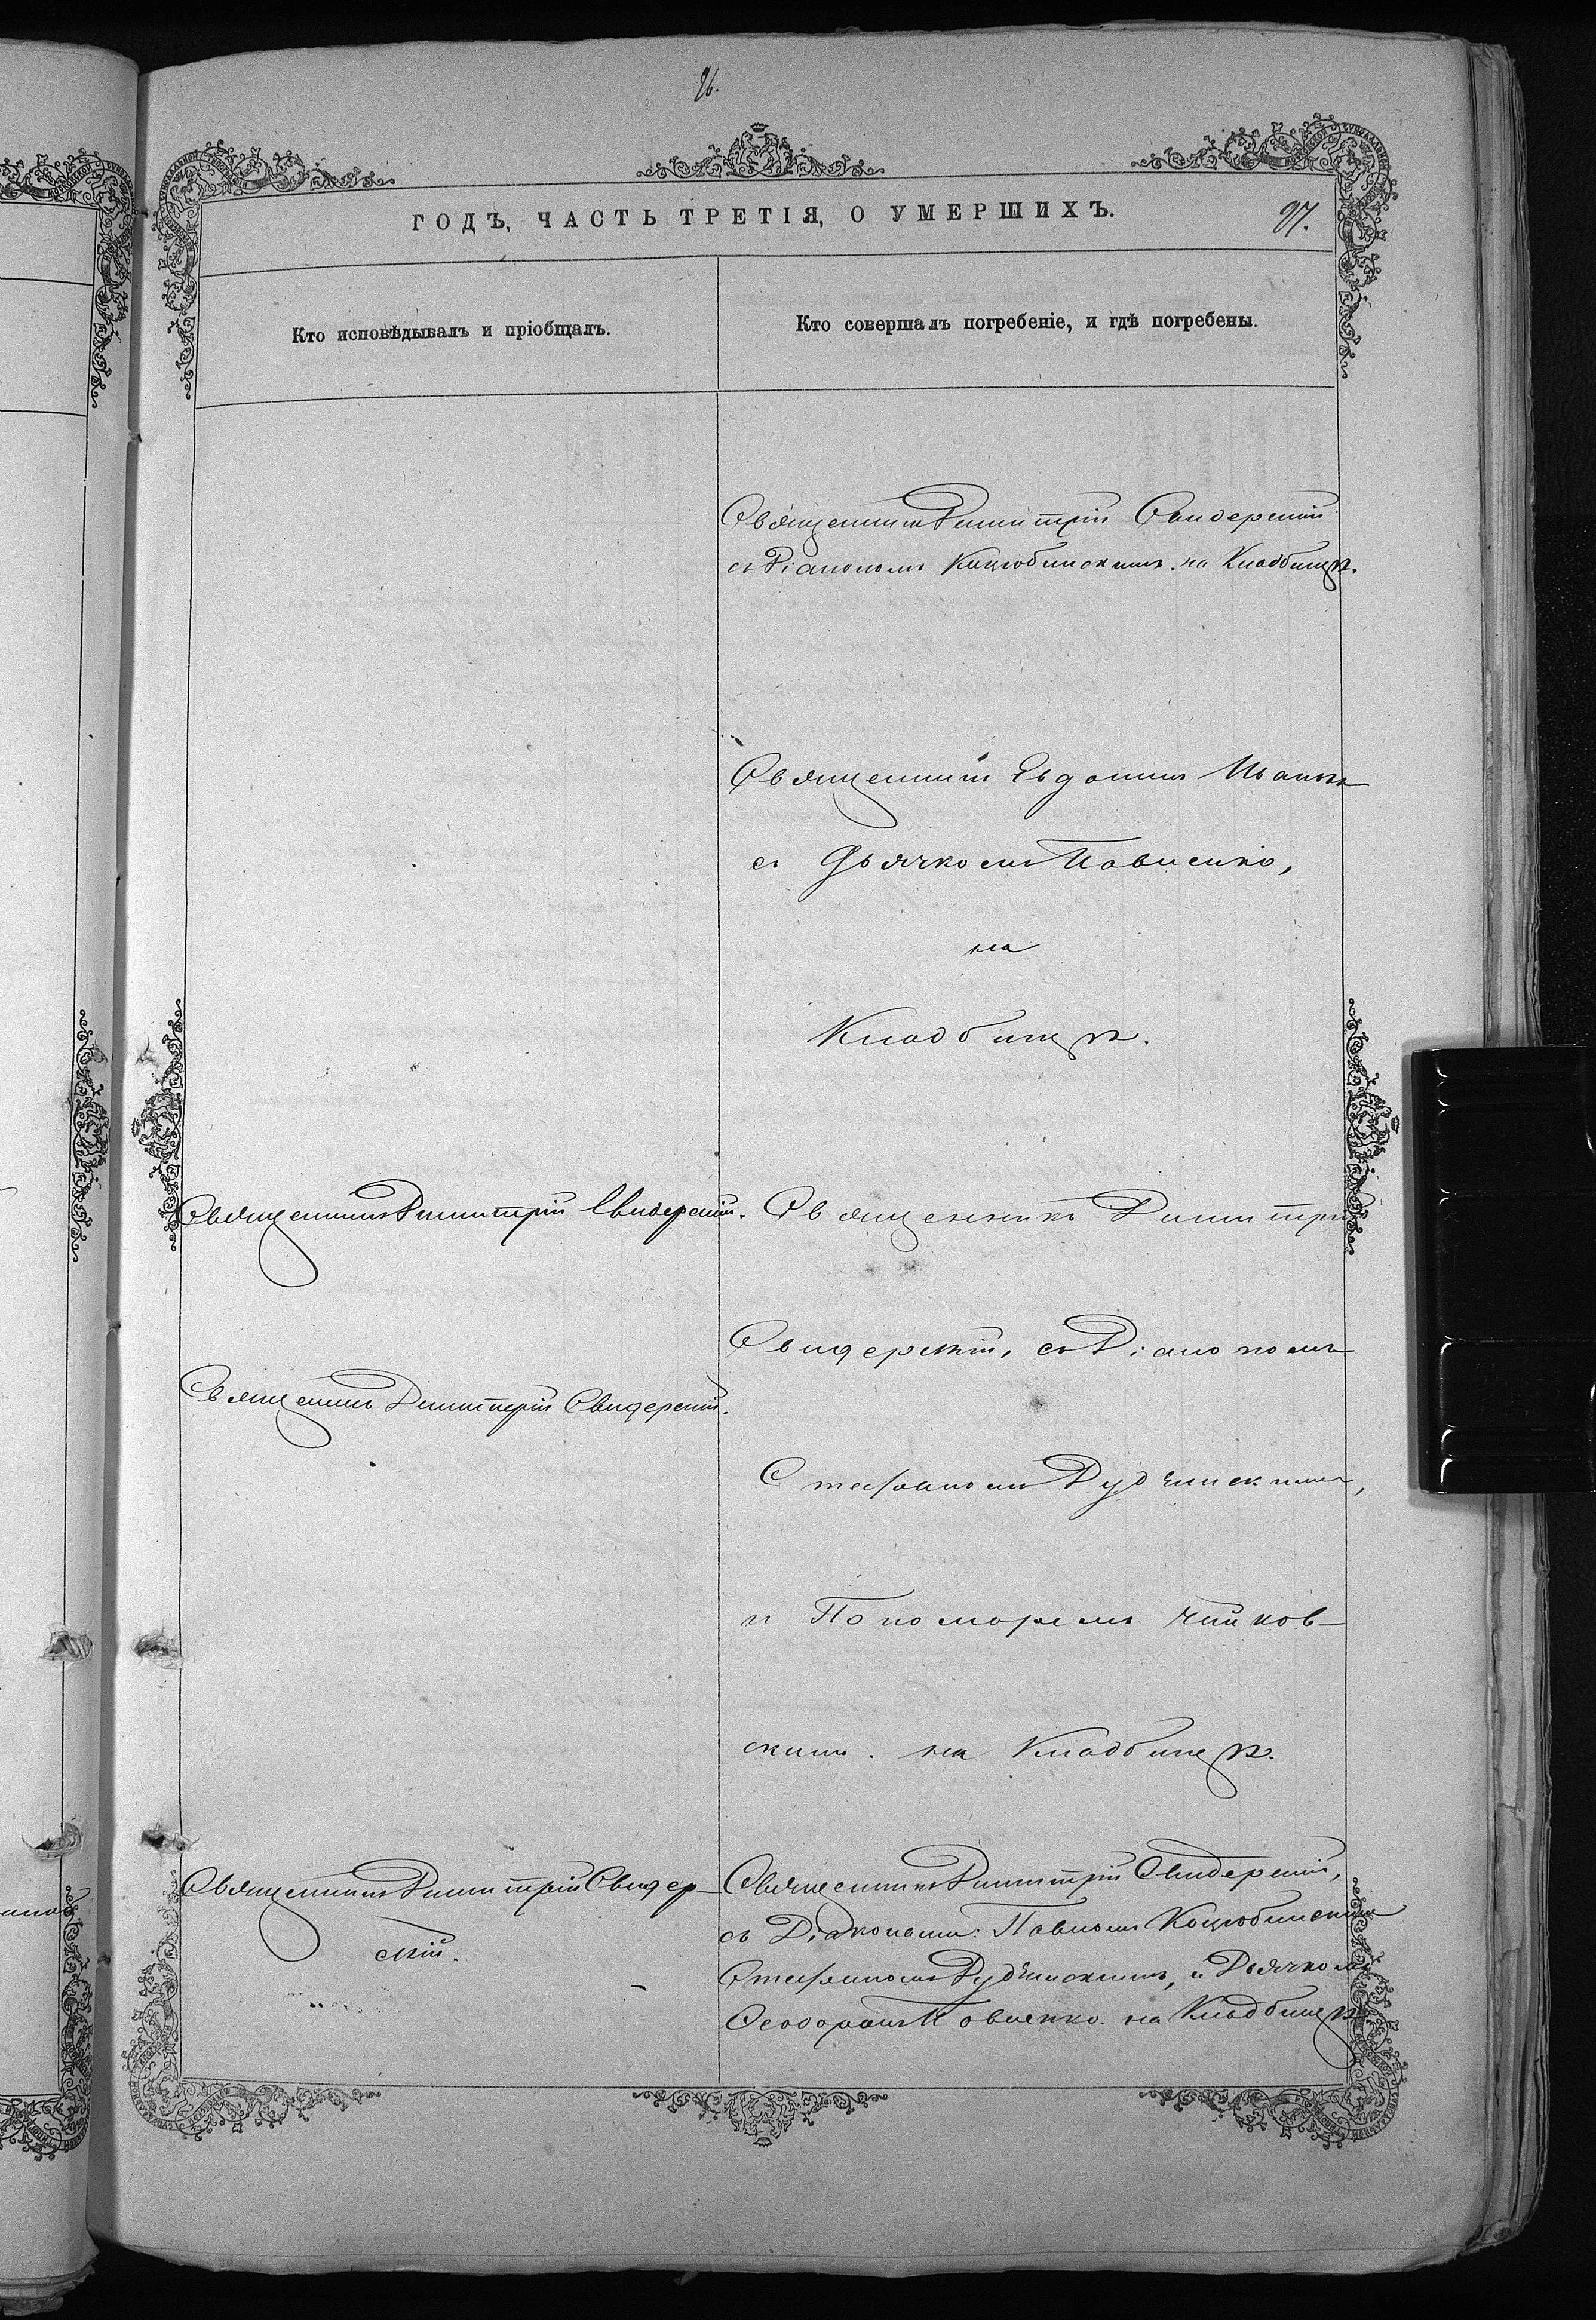 96.
ГОДЪ, ЧАСТЬ ТРЕТІЯ, О УМЕРШИХЪ.
97.
Кто исповѣдывалъ и пріобщалъ.
Кто совершалъ погребеніе, и гдѣ погребены.
Священникъ Димитрій Свидерскій
съ Діакономъ Коцюбинскимъ. на Кладбищѣ.
Священникъ
съ Дьячкомъ Повиенко,
на
Кладбищѣ.
Священникъ Димитрій Свидерскій.
Священникъ Димитрій
Свидерскій, съ Діакономъ
Священникъ Димитрій Свидерскій.
Стефаномъ Рудчинскимъ,
и Пономаремъ Чайков-
скимъ. на Кладбищѣ.
Священникъ Димитрій Свидер-
скій.
Священникъ Димитрій Свидерскій,
съ Діаконами: Павломъ Коцюбинскимъ
Стефаномъ Рудчинскимъ, и Дьячкомъ
Ѳеодоромъ Повиенко. на Кладбищѣ.